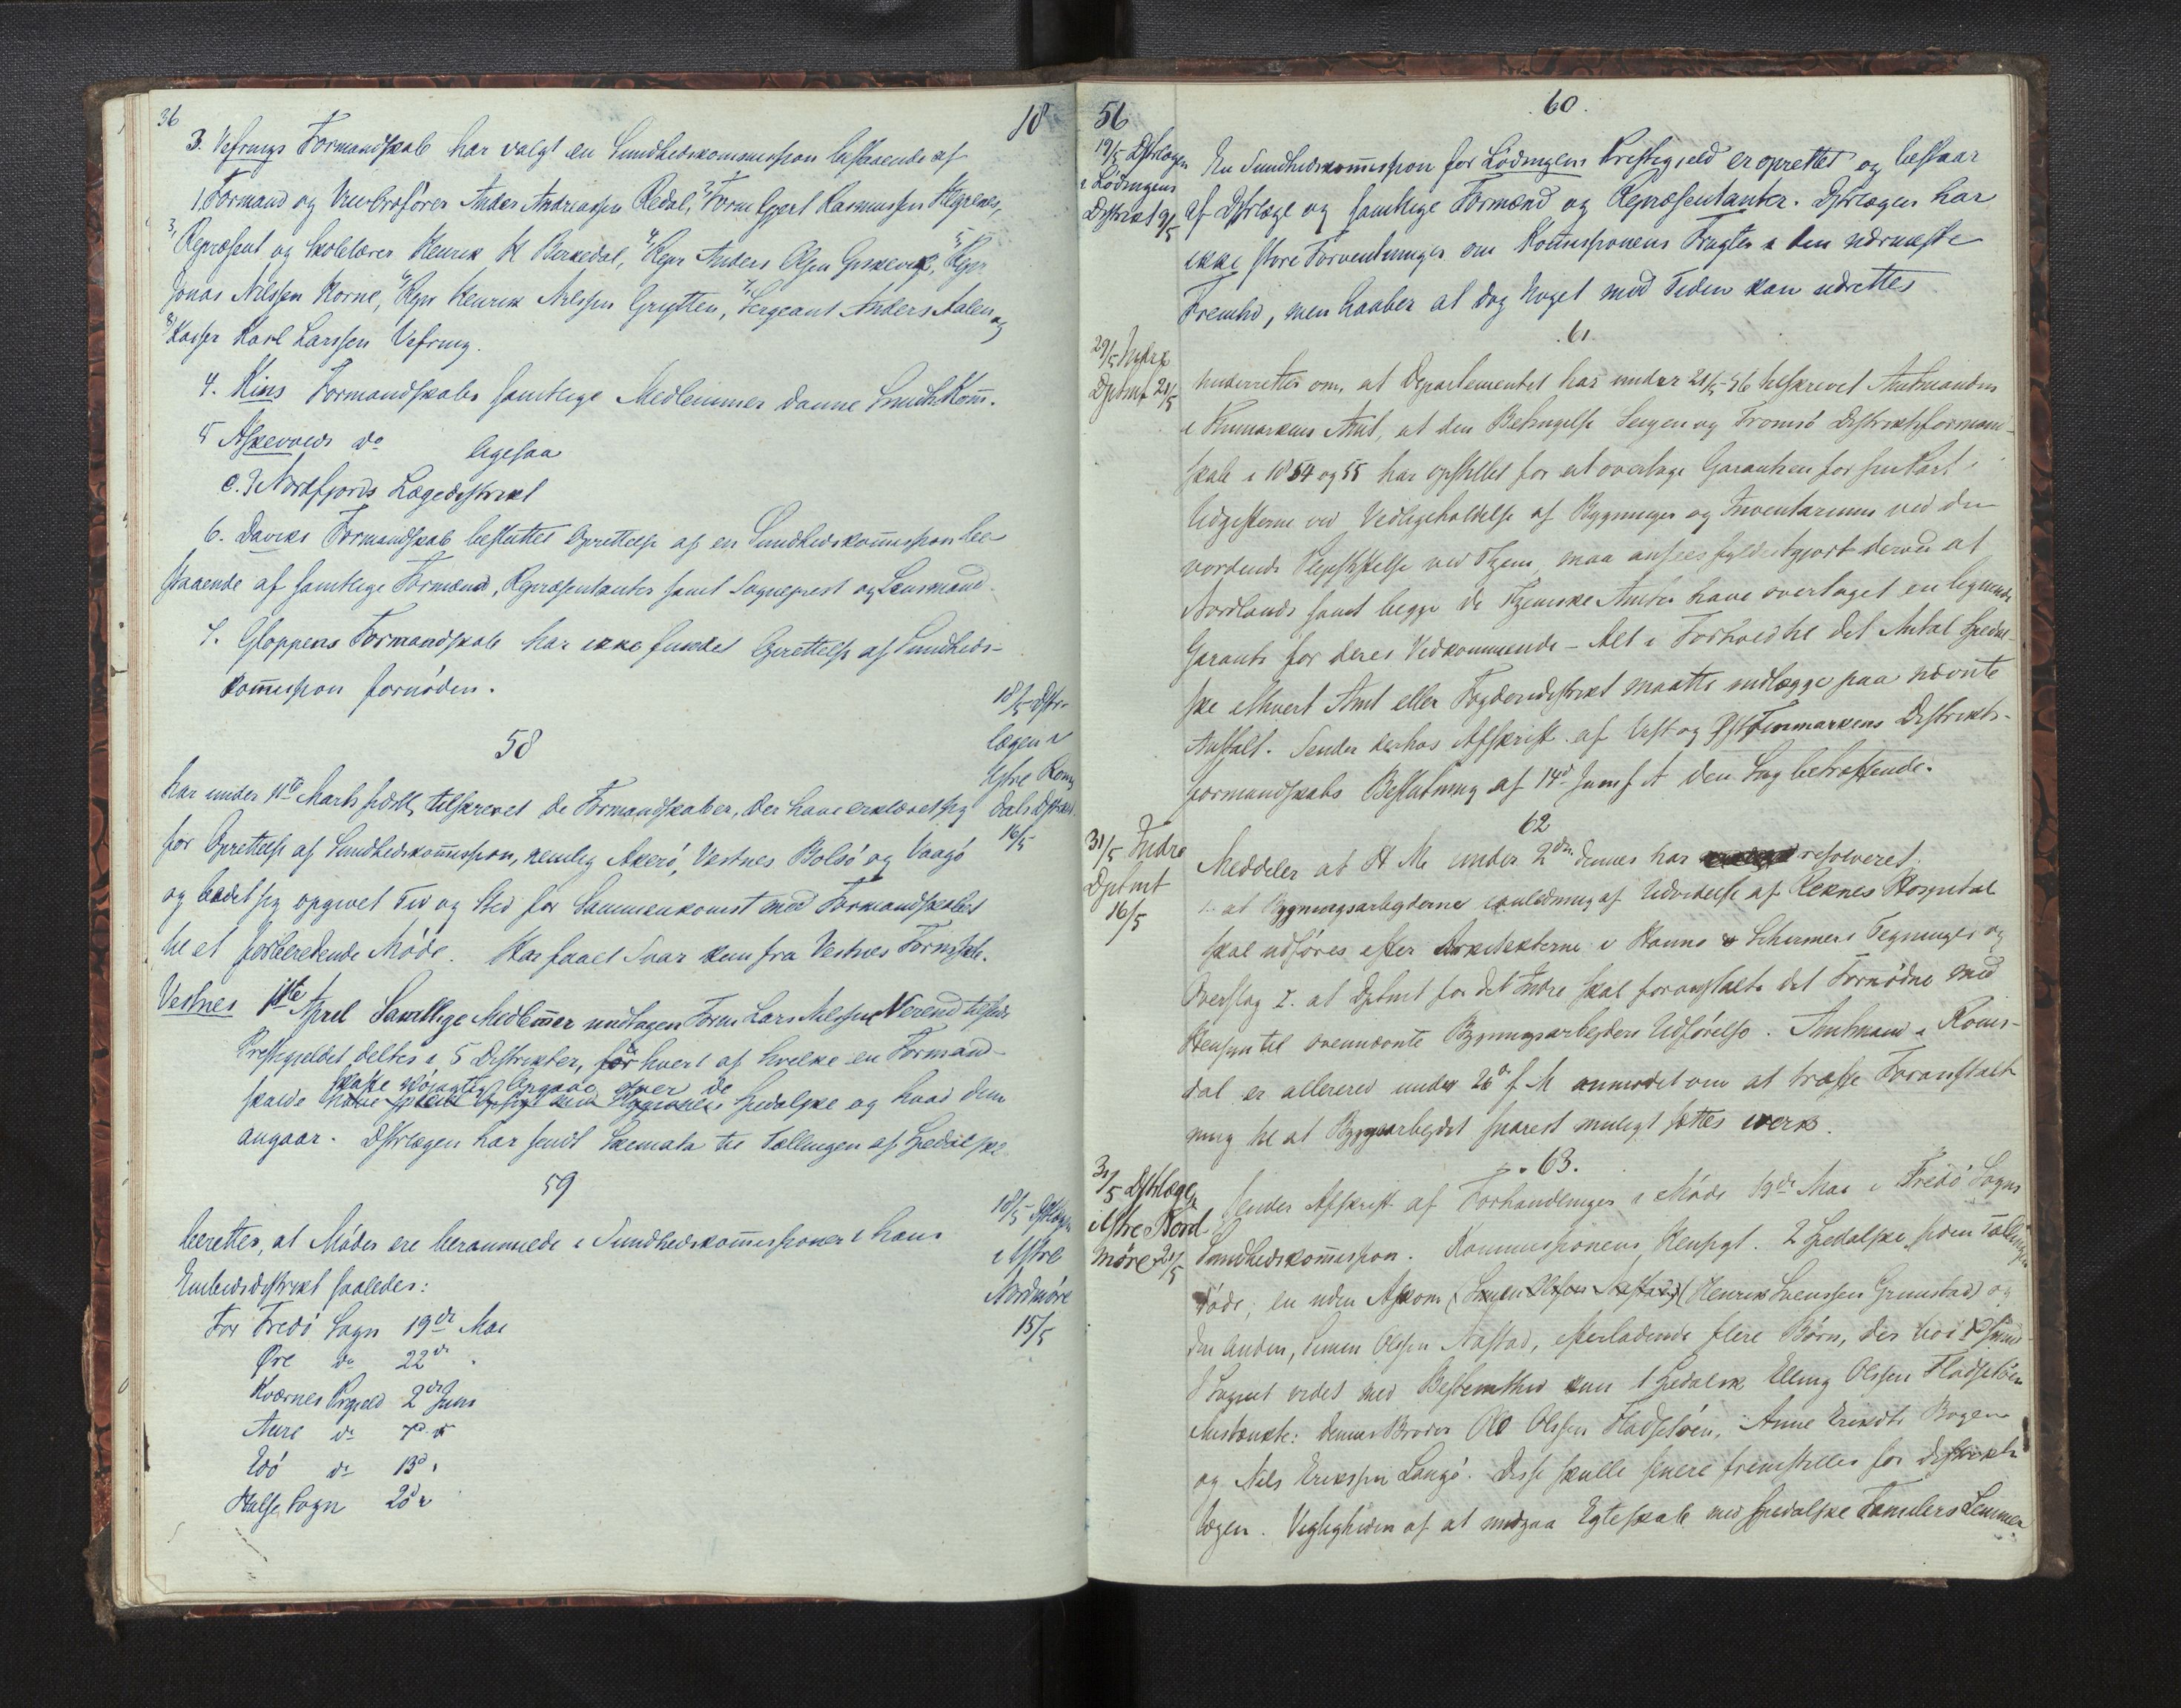 36
18
3. Vefrings Formandskab har valgt en Sundhedskommission bestaaende af
1. Formand og Veibroforer Anders Andreassen Redal, 2, Form Gjert Rasmussen Hegrenes,
3, Repræsent og Skolelærer Henrik H Birkedal, 4, Repr Anders Olsen 5, Repr
Jonas Nilssen Horne, 6, Repr Henrik Nilssen Grytten, 7, Sergeant Anders Aalen og
8, Karl Larssen Vefring.
4. Kins Formandskabs samtlige Medlemmer danne SundhKom̄.
5 Askevolds do ligesaa
c. I Nordfjords Lægedistrikt
6. Daviks Formandskab besluttet Oprettelse af en Sundhedskom̄ission be
staaende af samtlige Formænd, Repræsentanter samt Sogneprest og Lensmand
7. Gloppens Formandskab har ikke fundet Oprettelse af Sundheds-
kom̄ission fornøden.
58
18/5 Distr-
lægen i
Ystre Roms
dals Distrikt
16/5
har under 11te Marts sidstl, tilskrevet de Formandskaber, der have erklæret sig
for Oprettelse af Sundhedskom̄ission, nemlig Akerö, Vestnes Bolsö og Vaagö
og bedet sig opgivet Tid og Sted for Sammenkomst med Formandskabet
til et forberedende Möde. Har faaet Svar kun fra Vestnes Formskb.
Vestnes 11te April Samtlige Medlem̄er undtagen Form Lars Nilssen Nerend tilstede
Prestegjeldet deltes i 5 Distrikter, for hvert af hvilke en Formand
skulde skaffe nöiagtigt Opgave over de Spedalske og hvad dem
angaar. Distrlægen har sendt Skemata til Tællingen af Spedalske
59
18/5 Distrlægen
i Ystre
Nordmöre
15/5
beretter, at Möder ere berammede i Sundhedskom̄issioner i hans
Embedsdistrikt saaledes:
For Fredö Sogn 19de Mai
Øre do 22de "
Kværnes Prgjeld 2den Juni
Aure do 7de "
Edö do 13de "
Halse Sogn 20de "
56
60.
19/5 Distrlægen
i Lödingens
Distrikt 9/5
En Sundhedskom̄ission for Lödingens Prestegjeld er oprettet og bestaar
af Distrlæge og samtlige Formænd og Repræsentanter. Distrlægen har
ikke store Forventninger om Kom̄issionens Frugter i den nærmeste
Fremtid, men haaber at dog Noget med Tiden kan udrettes
61.
29/5 Indre
Dptmt 21/5
Underrettes om, at Departementet har under 21/5 56 tilskrevet Amtmanden
i Finmarkens Amt, at den Betingelse Senjen og Tromsö Distriktsforman-
skab i 1854 og 55 har opstillet for at overtage Garantien for sin Part i
Udgifterne ved Vedligeholdelse af Bygninger og Inventarium ved den
vordende Pleiestiftelse ved Thjem, maa ansees fyldestgjort derved at
Nordlands samt begge de Thjemske Amter have overtaget en lignende
Garanti for deres Vedkommende - Alt i Forhold til det Antal Spedal-
ske ethvert Amt eller Fogderidistrikt maatte indlægge paa nævnte
Anstalt. Sender derhos Afskrift af Vest og Øst Finmarkens Distrikts-
formandskabs Beslutning af 14de Juni f A den Sag betræffende.
62
31/5 Indre
Dptmt
16/5
Meddeler at H M. under 2den dennes har resolveret:
1. at Bygningsarbeiderne i anledning af Udvidelse af Reknes Hospital
skal udföres efter Arkitekterne v Hanno & Schirmers Tegninger og
Overslag 2. at Dptmt for det Indre skal foranstalte det Fornödne med
Hensyn til ovennævnte Bygningsarbeiders Udförelse. Amtmand i Roms-
dal er allerede under 26de f M anmodet om at træffe Foranstalt
ning til at Bygnarbeidet snarest muligt sættes iværk.
63.
31/5 Distrlægen
i Ystre Nord-
möre 21/5
Sender Afskrift af Forhandlinger i Möde 19de Mai i Fredö Sogns
Sundhedskom̄ission. Kommissionens Hensigt. 2 Spedalske siden Tællingen
döde; en uden Afkom (Henrik Svenssen Grimstad) og
den Anden, Simen Olsen Aafstad, efterladende flere Börn,
I Sognet vides med Bestemthed kun 1 Spedalsk Elling Olssen Fladseløen
Mistænkte: dennes Broder Ole Olssen Fladseløen, Anne Eriksdt Bogen
og Nils Erikssen Langö. Disse skulle senere fremstilles for Distrikts
lægen. Vigtigheden af at undgaa Egteskab med spedalske Familiers Lemmer